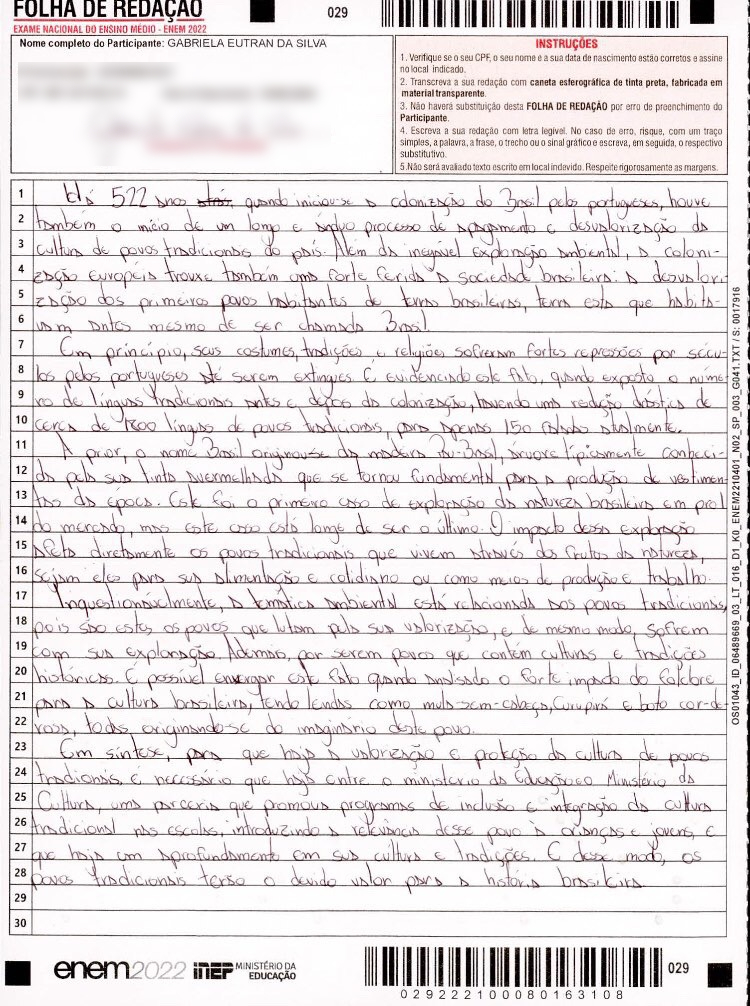 FOLHA DE REDAÇÃO
EXAME NACIONAL DO ENSINO MÉDIO - ENEM 2022
029
Nome completo do Participante: GABRIELA EUTRAN DA SILVA
INSTRUÇÕES
1. Verifique se o seu CPF, o seu nome e a sua data de nascimento estão corretos e assine
no local indicado.
2. Transcreva a sua redação com caneta esferográfica de tinta preta, fabricada em
material transparente.
3. Não haverá substituição desta FOLHA DE REDAÇÃO por erro de preenchimento do
Participante.
4. Escreva a sua redação com letra legível. No caso de erro, risque, com um traço
simples, a palavra, a frase, o trecho ou o sinal gráfico e escreva, em seguida, o respectivo
substitutivo.
5. Não será avaliado texto escrito em local indevido. Respeite rigorosamente as margens.
1 Há 522 anos atrás, quando iniciou-se a colonização do Brasil pelos portugueses, houve
2 também o início de um longo e árduo processo de apagamento e desvalorização da
3 cultura de povos tradicionais do país. Além da inegável exploração ambiental, a coloni-
4 zação europeia trouxe também uma forte ferida a sociedade brasileira: a desvalori-
5 zação dos primeiros povos habitantes de terras brasileiras, terra esta que habita-
6 vam antes mesmo de ser chamada Brasil.
7 Em princípio, seus costumes, tradições e religiões sofreram fortes repressões por sécu-
8 los pelos portugueses até serem extingues. É evidenciado este fato, quando exposto o núme-
9 ro de línguas tradicionais antes e depois da colonização, havendo uma redução drástica de
10 cerca de 1200 línguas de povos tradicionais, para apenas 150 faladas atualmente.
11 A prior, o nome Brasil originou-se da madeira Pau-Brasil, árvore tipicamente conheci-
12 da pela sua tinta avermelhada que se tornou fundamental para a produção de vestimen-
13 tas da época. Este foi o primeiro caso de exploração da natureza brasileira em prol
14 do mercado, mas este caso está longe de ser o último. O impacto dessa exploração
15 afeta diretamente os povos tradicionais que vivem através dos frutos da natureza,
16 sejam eles para sua alimentação e cotidiano ou como meios de produção e trabalho.
17 Inquestionavelmente, a temática ambiental está relacionada aos povos tradicionais,
18 pois são estes os povos que lutam pela sua valorização, e de mesmo modo, sofrem
19 com sua exploração. Ademais, por serem povos que contém culturas e tradições
20 históricas. É possível enxergar este fato quando analisado o forte impacto do folclore
21 para a cultura brasileira, tendo lendas como mula-sem-cabeça, Curupira e boto cor-de-
22 rosa, todas originando-se do imaginário deste povo.
23 Em síntese, para que haja a valorização e proteção da cultura de povos
24 tradionais, é necessário que haja entre o ministério da Educação e o Ministério da
25 Cultura, uma parceria que promova programas de inclusão e integração da cultura
26 tradicional nas escolas, introduzindo a relevância desse povo à crianças e jovens, e
27 que haja um aprofundamento em sua cultura e tradições. E desse modo, os
28 povos tradicionais terão o devido valor para a história brasileira.
29
30
OS01043_ID_06489669_03_LT_016_D1_K0_ENEM2210401_N02_SP_003_G041.TXT / S: 0017916
enem2022 inep MINISTÉRIO DA
EDUCAÇÃO
029222100080163108
029